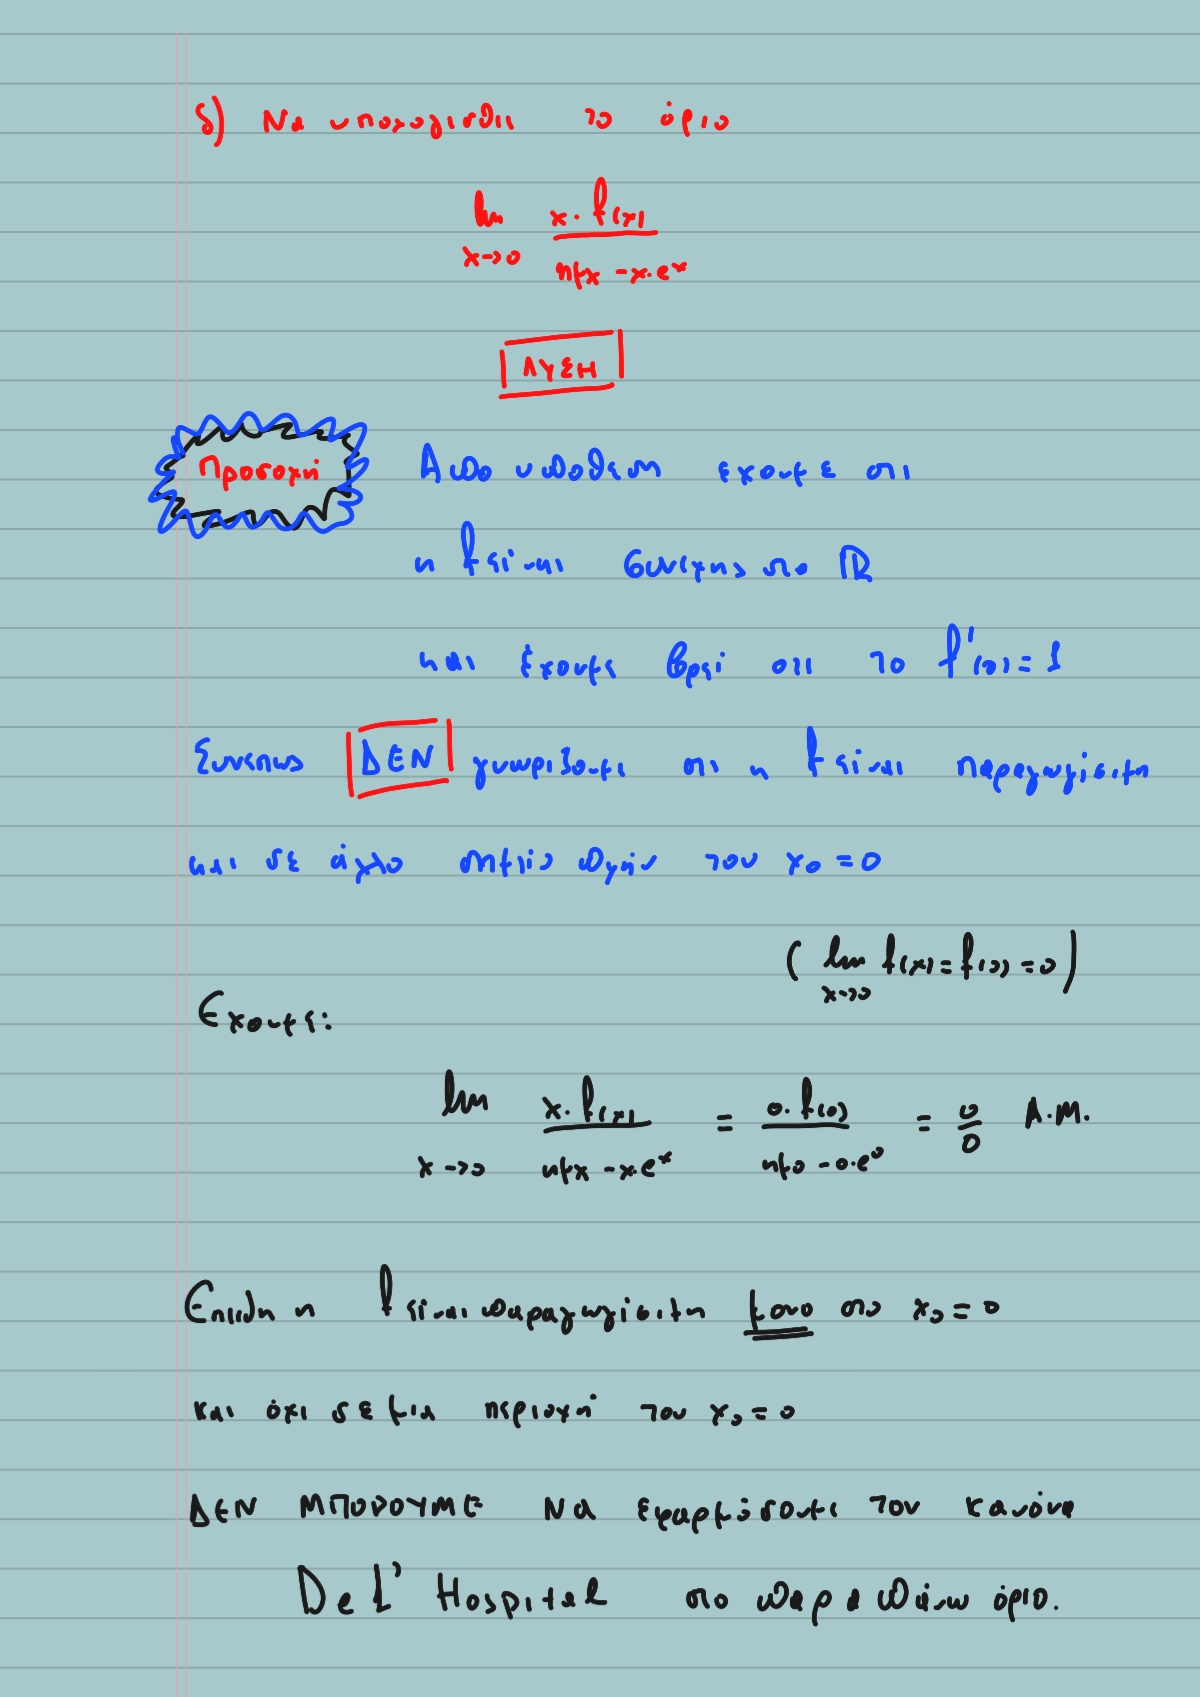 δ) Να υπολογισθεί το όριο
lim x→0 x·f(x) / ημx - x·e^x
ΛΥΣΗ
Προσοχή Απο υποθεση εχουμε οτι
η f είναι συνεχης στο ℝ
και έχουμε βρεί οτι το f'(0) = 1
Συνεπως ΔΕΝ γνωριζουμε οτι η f είναι παραγωγίσιμη
και σε άλλο σημείο πλην του x₀ = 0
(lim x→0 f(x) = f(0) = 0)
Εχουμε:
lim x→0 x·f(x) / ημx - x·e^x = 0·f(0) / ημ0 - 0·e^0 = 0/0 Α.Μ.
Επειδη η f είναι παραγωγίσιμη μονο στο x₀ = 0
και όχι σε μια περιοχή του x₀ = 0
ΔΕΝ ΜΠΟΡΟΥΜΕ να εφαρμόσουμε τον κανόνα
De L' Hospital στο παραπάνω όριο.